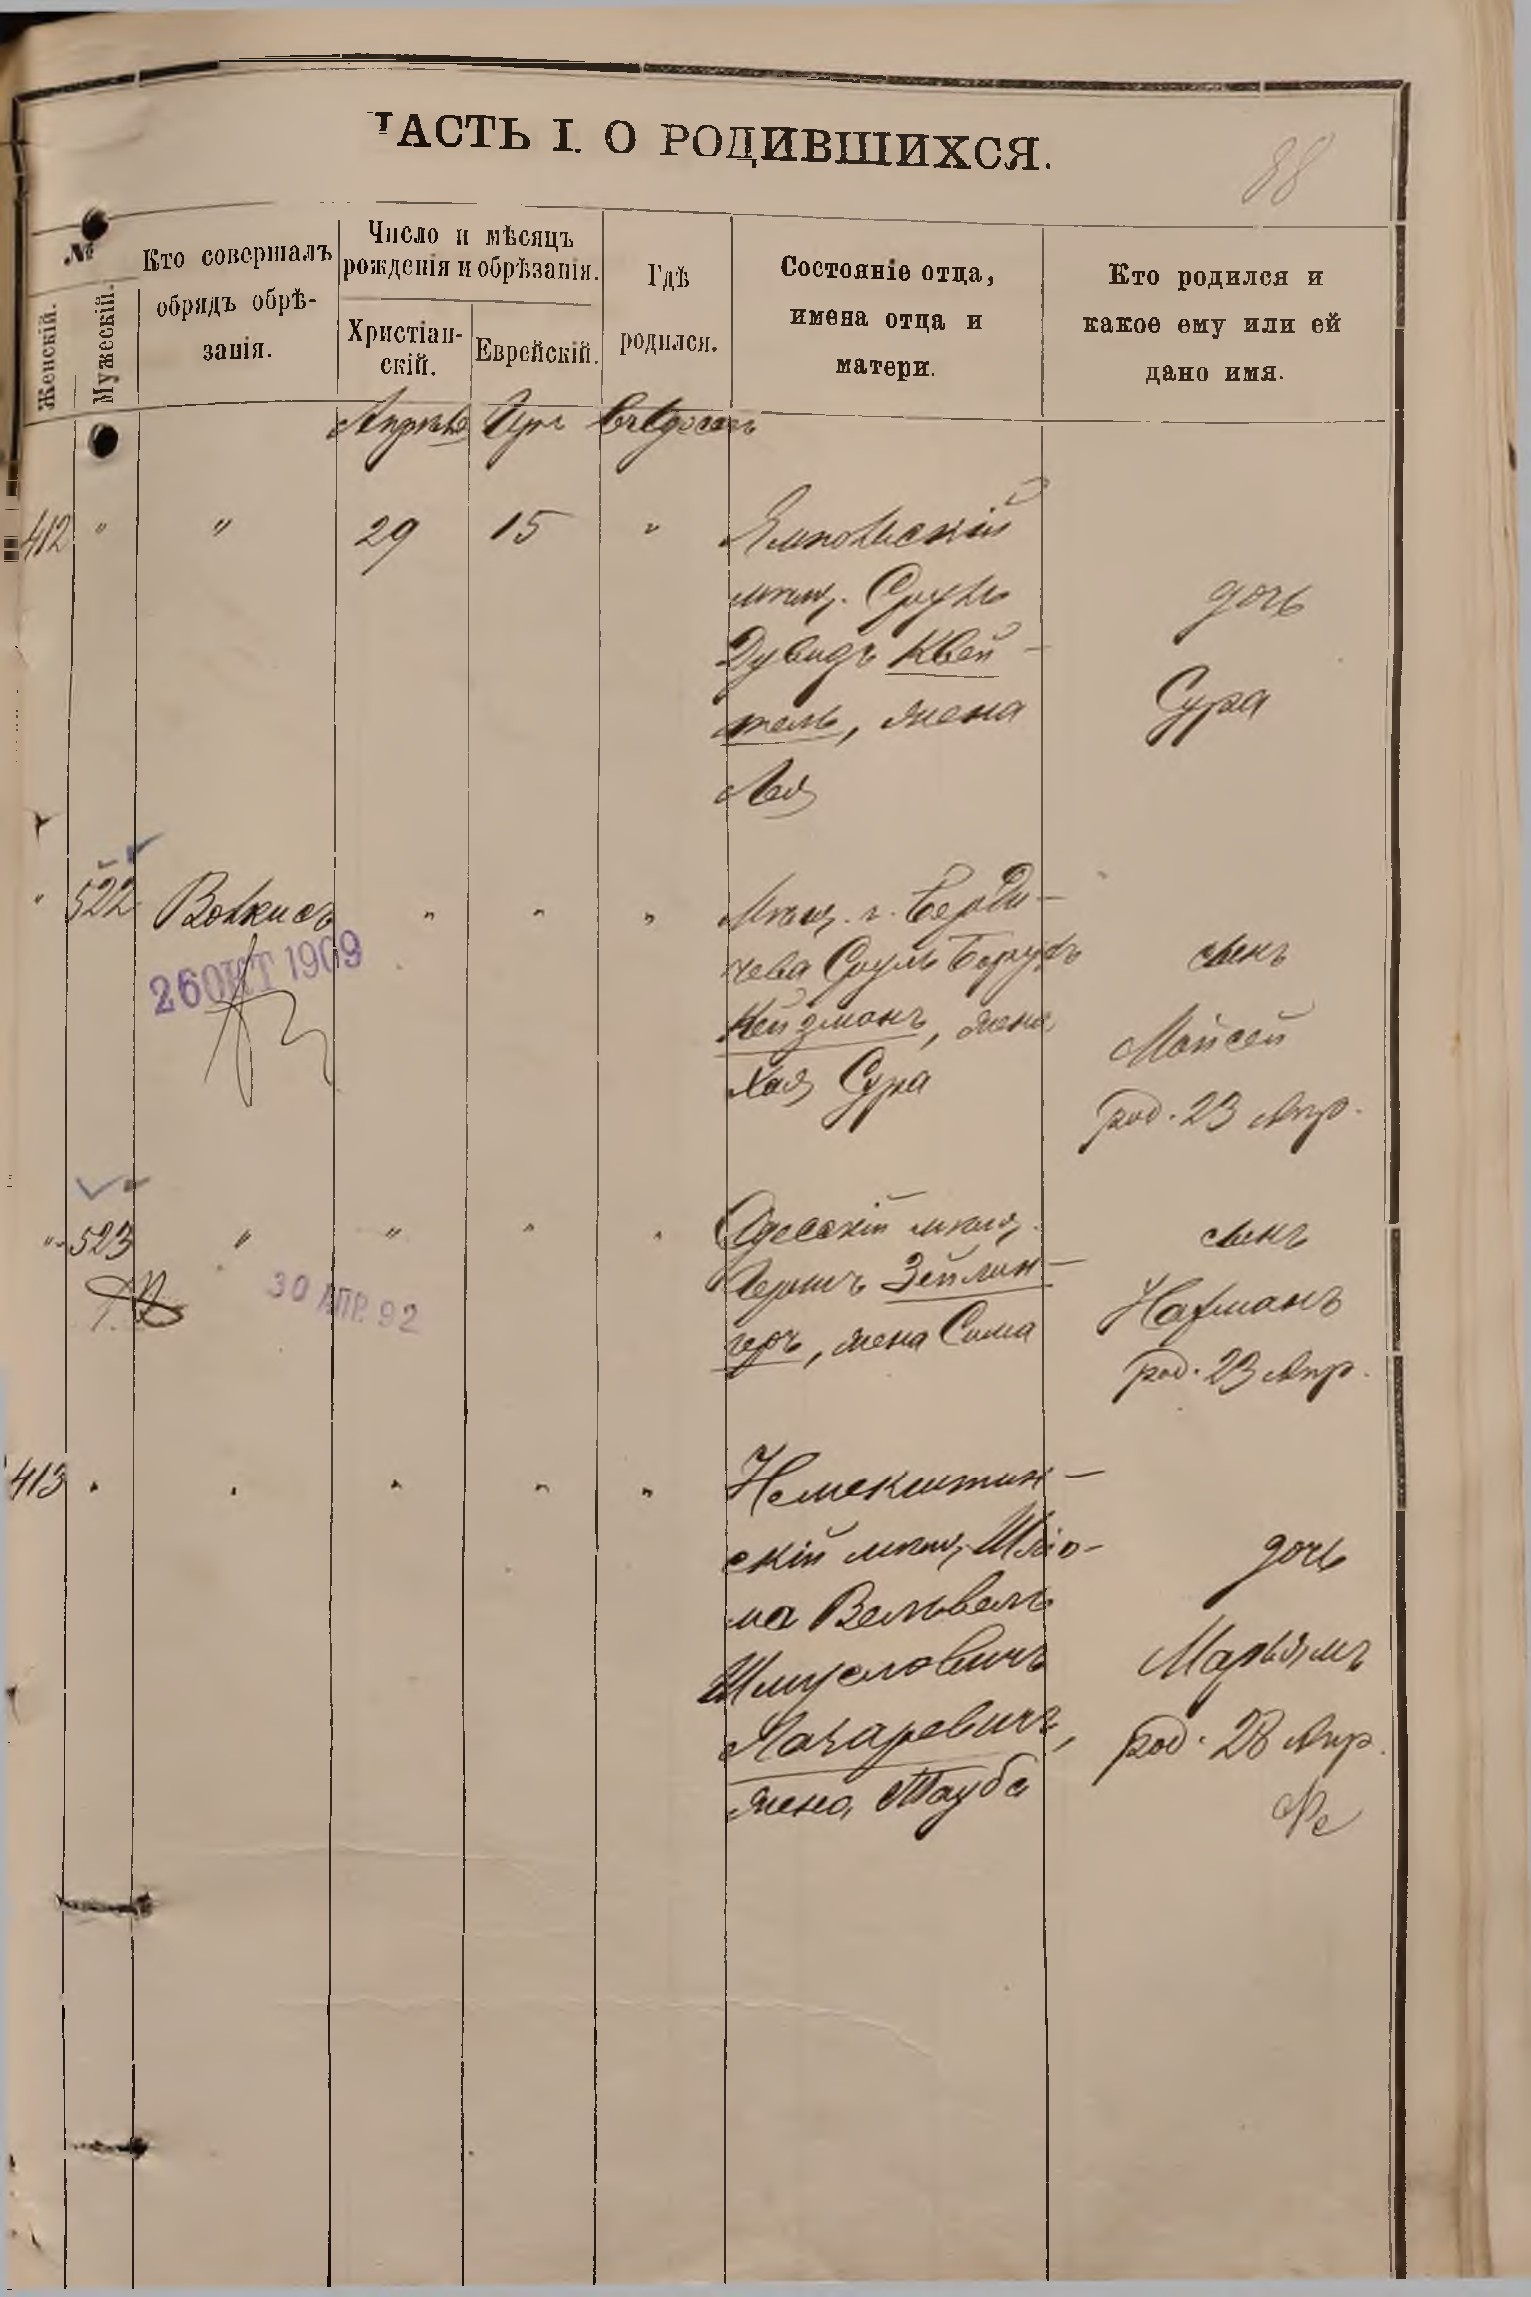 ЧАСТЬ I. О РОДИВШИХСЯ.
88
№
Женскій.
Мужескій.
Кто совершалъ
обрядъ обрѣ-
занія.
Число и мѣсяцъ
рожденія и обрѣзанія.
Христіан-
скій.
Еврейскій.
Гдѣ
родился.
Состояніе отца,
имена отца и
матери.
Кто родился и
какое ему или ей
дано имя.
Апрѣль Іяръ въ Одессѣ
412 " " 29 15 "
Ямпольскій
мѣщ. Сруль
Дувидъ Квей-
тель, жена
Лея
дочь
Сура
" 522 Волкисъ " " "
26 ОКТ 1909
Мѣщ. г. Берди-
чева Сруль Борухъ
Кейзманъ, жена
Хая Сура
сынъ
Мойсей
род. 23 Апр.
" 523 " " " "
30 АПР. 92
Одесскій мѣщ.
Гершъ Зейлин-
геръ, жена Сима
сынъ
Нахманъ
род. 23 Апр.
413 " " " " "
Немекштин-
скій мѣщ. Шлио-
ма Вельвель
Шмуеловичъ
Лазаревичъ,
жена Тауба
дочь
Марьямъ
род. 28 Апр.